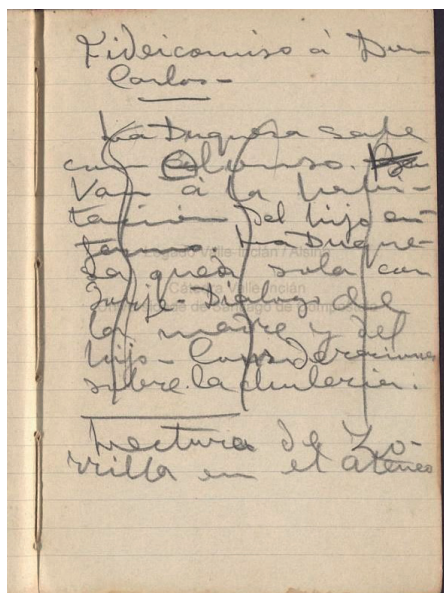 Fideicomiso á Don
Carlos -
La Duquesa sale
con Alonso.
Van á la habi-
tación del hijo en-
fermo. La Duque-
sa queda sola con
Jorje - Dialogo de
la madre y del
hijo - Consideraciones
sobre la chuleria.
Lectura de Zo-
rrilla en el Ateneo
Legado Valle-Inclán / Alsina
Cátedra Valle-Inclán
Universidade de Santiago de Compostela